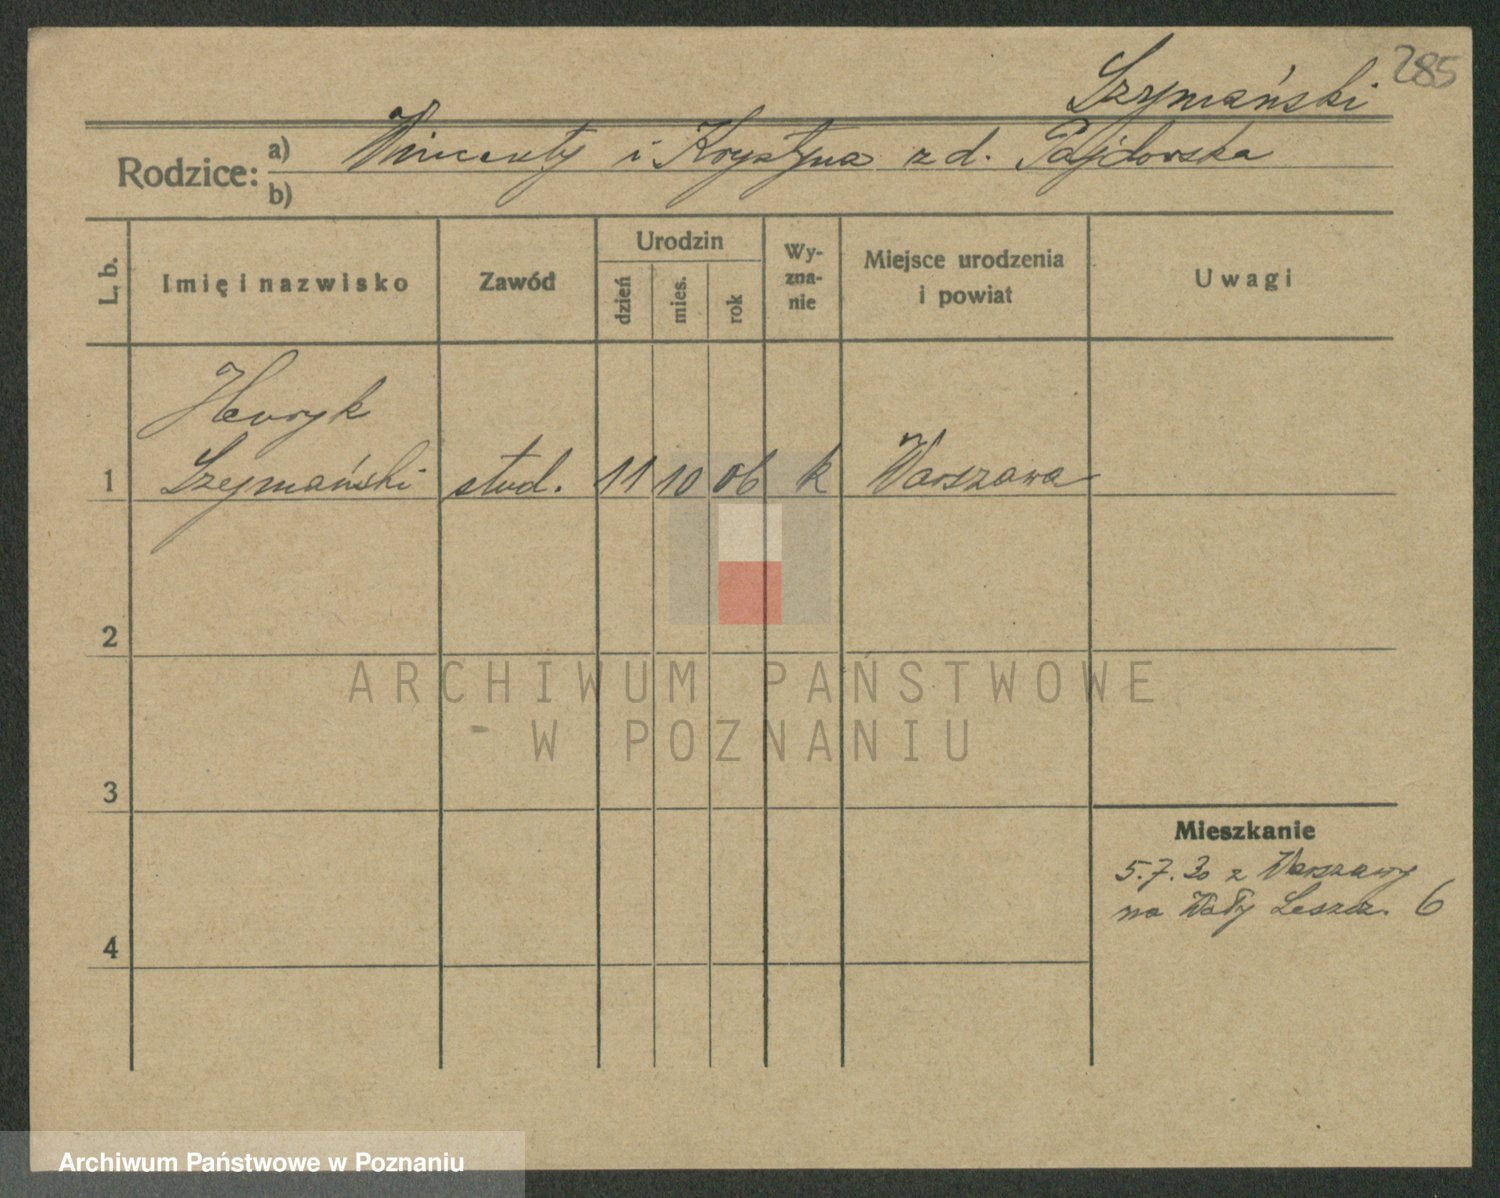 285
Szymański
Rodzice: a) Wincenty i Krystyna z d. Pajdowska
b)
L. b.
Imię i nazwisko
Zawód
Urodzin
dzień
mies.
rok
Wy-
zna-
nie
Miejsce urodzenia
i powiat
Uwagi
Henryk
1 Szymański stud. 11 10 06 k Warszawa
2
3
4
Mieszkanie
5.7.30 z Warszawy
na Wały Leszcz. 6
ARCHIWUM PAŃSTWOWE
W POZNANIU
Archiwum Państwowe w Poznaniu